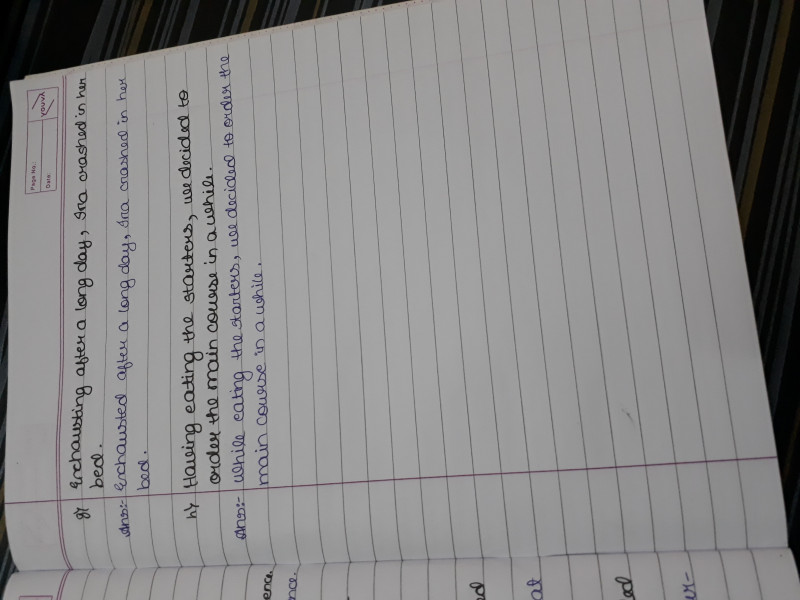 Page No.:
Date:
YOUVA
g) Exchausting after a long day, Ira crashed in her
bed.
Ans:- Exchausted after a long day, Ira crashed in her
bed.
h) Having eating the starters, we decided to
order the main course in a while.
Ans:- While eating the starters, we decided to order the
main course in a while.
ence.
nce.
ed
at
ed
ur-